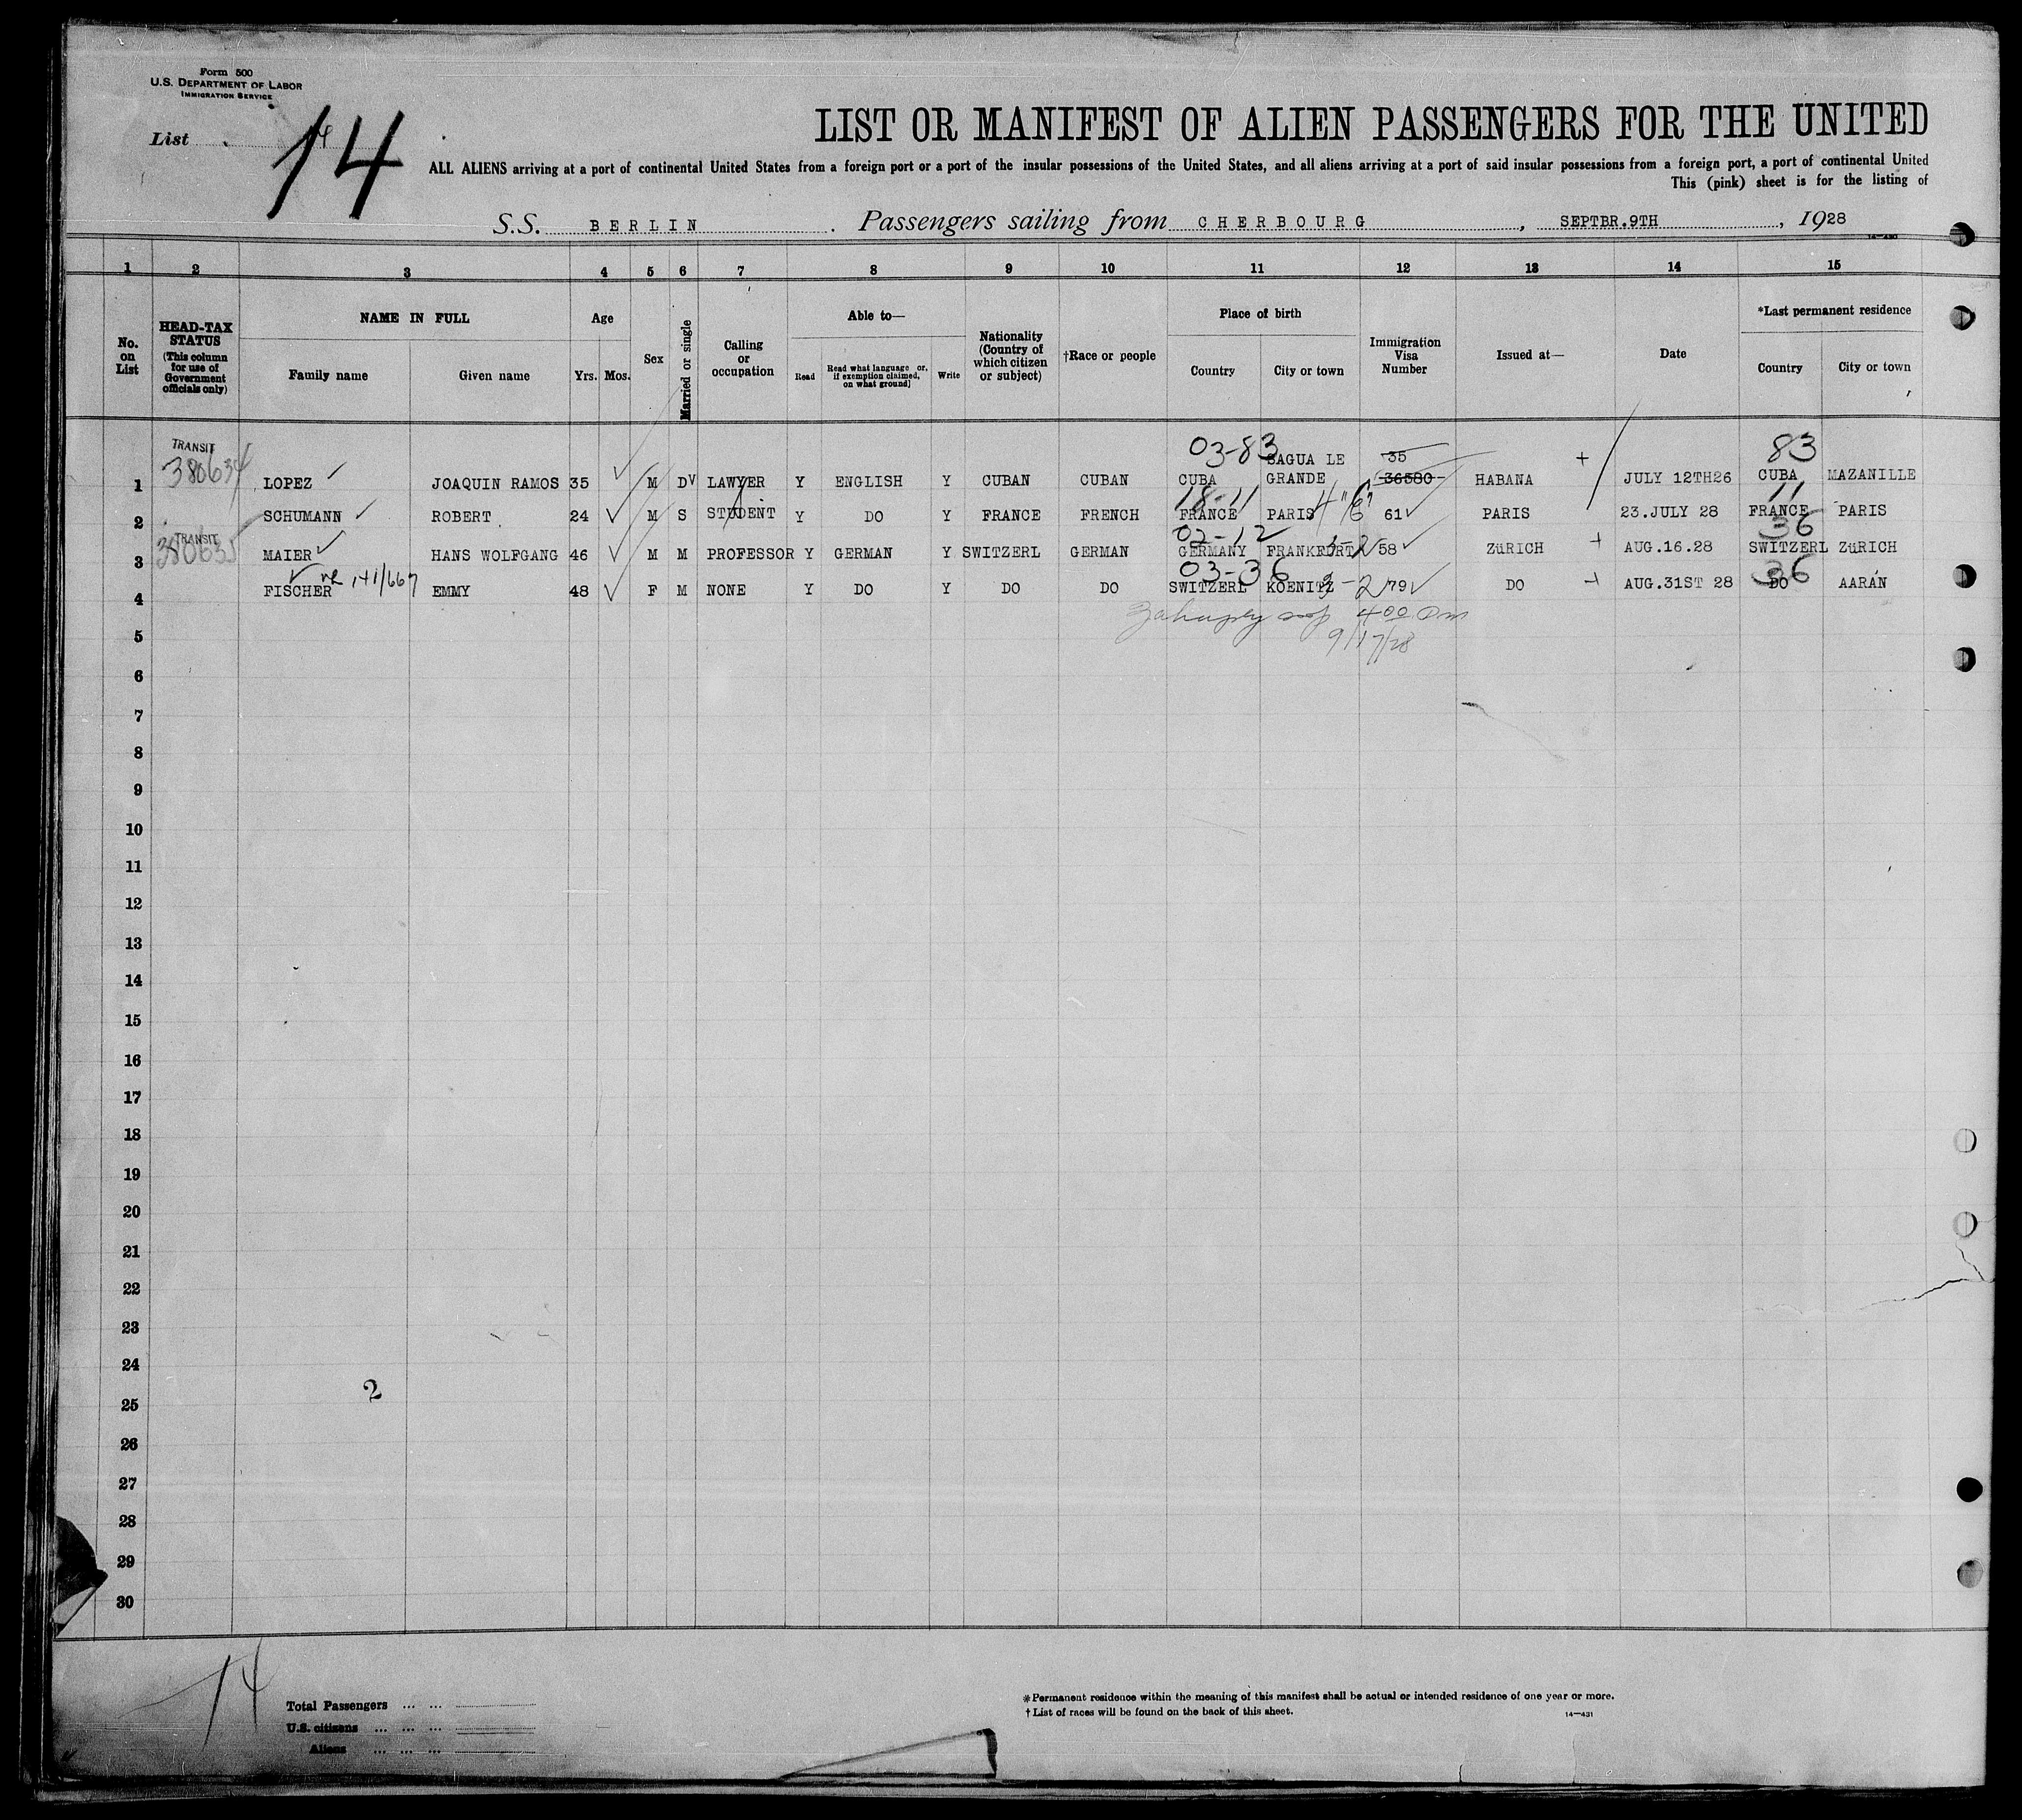 Form 500
U.S. DEPARTMENT OF LABOR
IMMIGRATION SERVICE
List 14
LIST OR MANIFEST OF ALIEN PASSENGERS FOR THE UNITED
ALL ALIENS arriving at a port of continental United States from a foreign port or a port of the insular possessions of the United States, and all aliens arriving at a port of said insular possessions from a foreign port, a port of continental United
This (pink) sheet is for the listing of
S.S. BERLIN. Passengers sailing from CHERBOURG, SEPTBR.9TH, 1928
14-430
1 2 3 4 5 6 7 8 9 10 11 12 13 14 15
No. on List
HEAD-TAX STATUS (This column for use of Government officials only)
NAME IN FULL
Family name Given name
Age
Yrs. Mos.
Sex
Married or single
Calling or occupation
Able to—
Read Read what language or, if exemption claimed, on what ground) Write
Nationality (Country of which citizen or subject)
†Race or people
Place of birth
Country City or town
Immigration Visa Number
Issued at—
Date
*Last permanent residence
Country City or town
TRANSIT 03-83 SAGUA LE 35 83
1 380634 LOPEZ JOAQUIN RAMOS 35 M DV LAWYER Y ENGLISH Y CUBAN CUBAN CUBA GRANDE 36580 HABANA JULY 12TH26 CUBA MAZANILLE
18-11 11
2 SCHUMANN ROBERT 24 M S STUDENT Y DO Y FRANCE FRENCH FRANCE PARIS 61 PARIS 23.JULY 28 FRANCE PARIS
TRANSIT 02-12 36
3 380635 MAIER HANS WOLFGANG 46 M M PROFESSOR Y GERMAN Y SWITZERL GERMAN GERMANY FRANKFURT 3-2 58 ZüRICH AUG.16.28 SWITZERL ZüRICH
03-36 36
4 FISCHER 141/667 EMMY 48 F M NONE Y DO Y DO DO SWITZERL KOENITZ 3-2 79 DO AUG.31ST 28 DO AARÁN
400 pm
9/17/28
5
6
7
8
9
10
11
12
13
14
15
16
17
18
19
20
21
22
23
24
2
25
26
27
28
29
30
14
Total Passengers
U.S. citizens
Aliens
*Permanent residence within the meaning of this manifest shall be actual or intended residence of one year or more.
†List of races will be found on the back of this sheet.
14-431